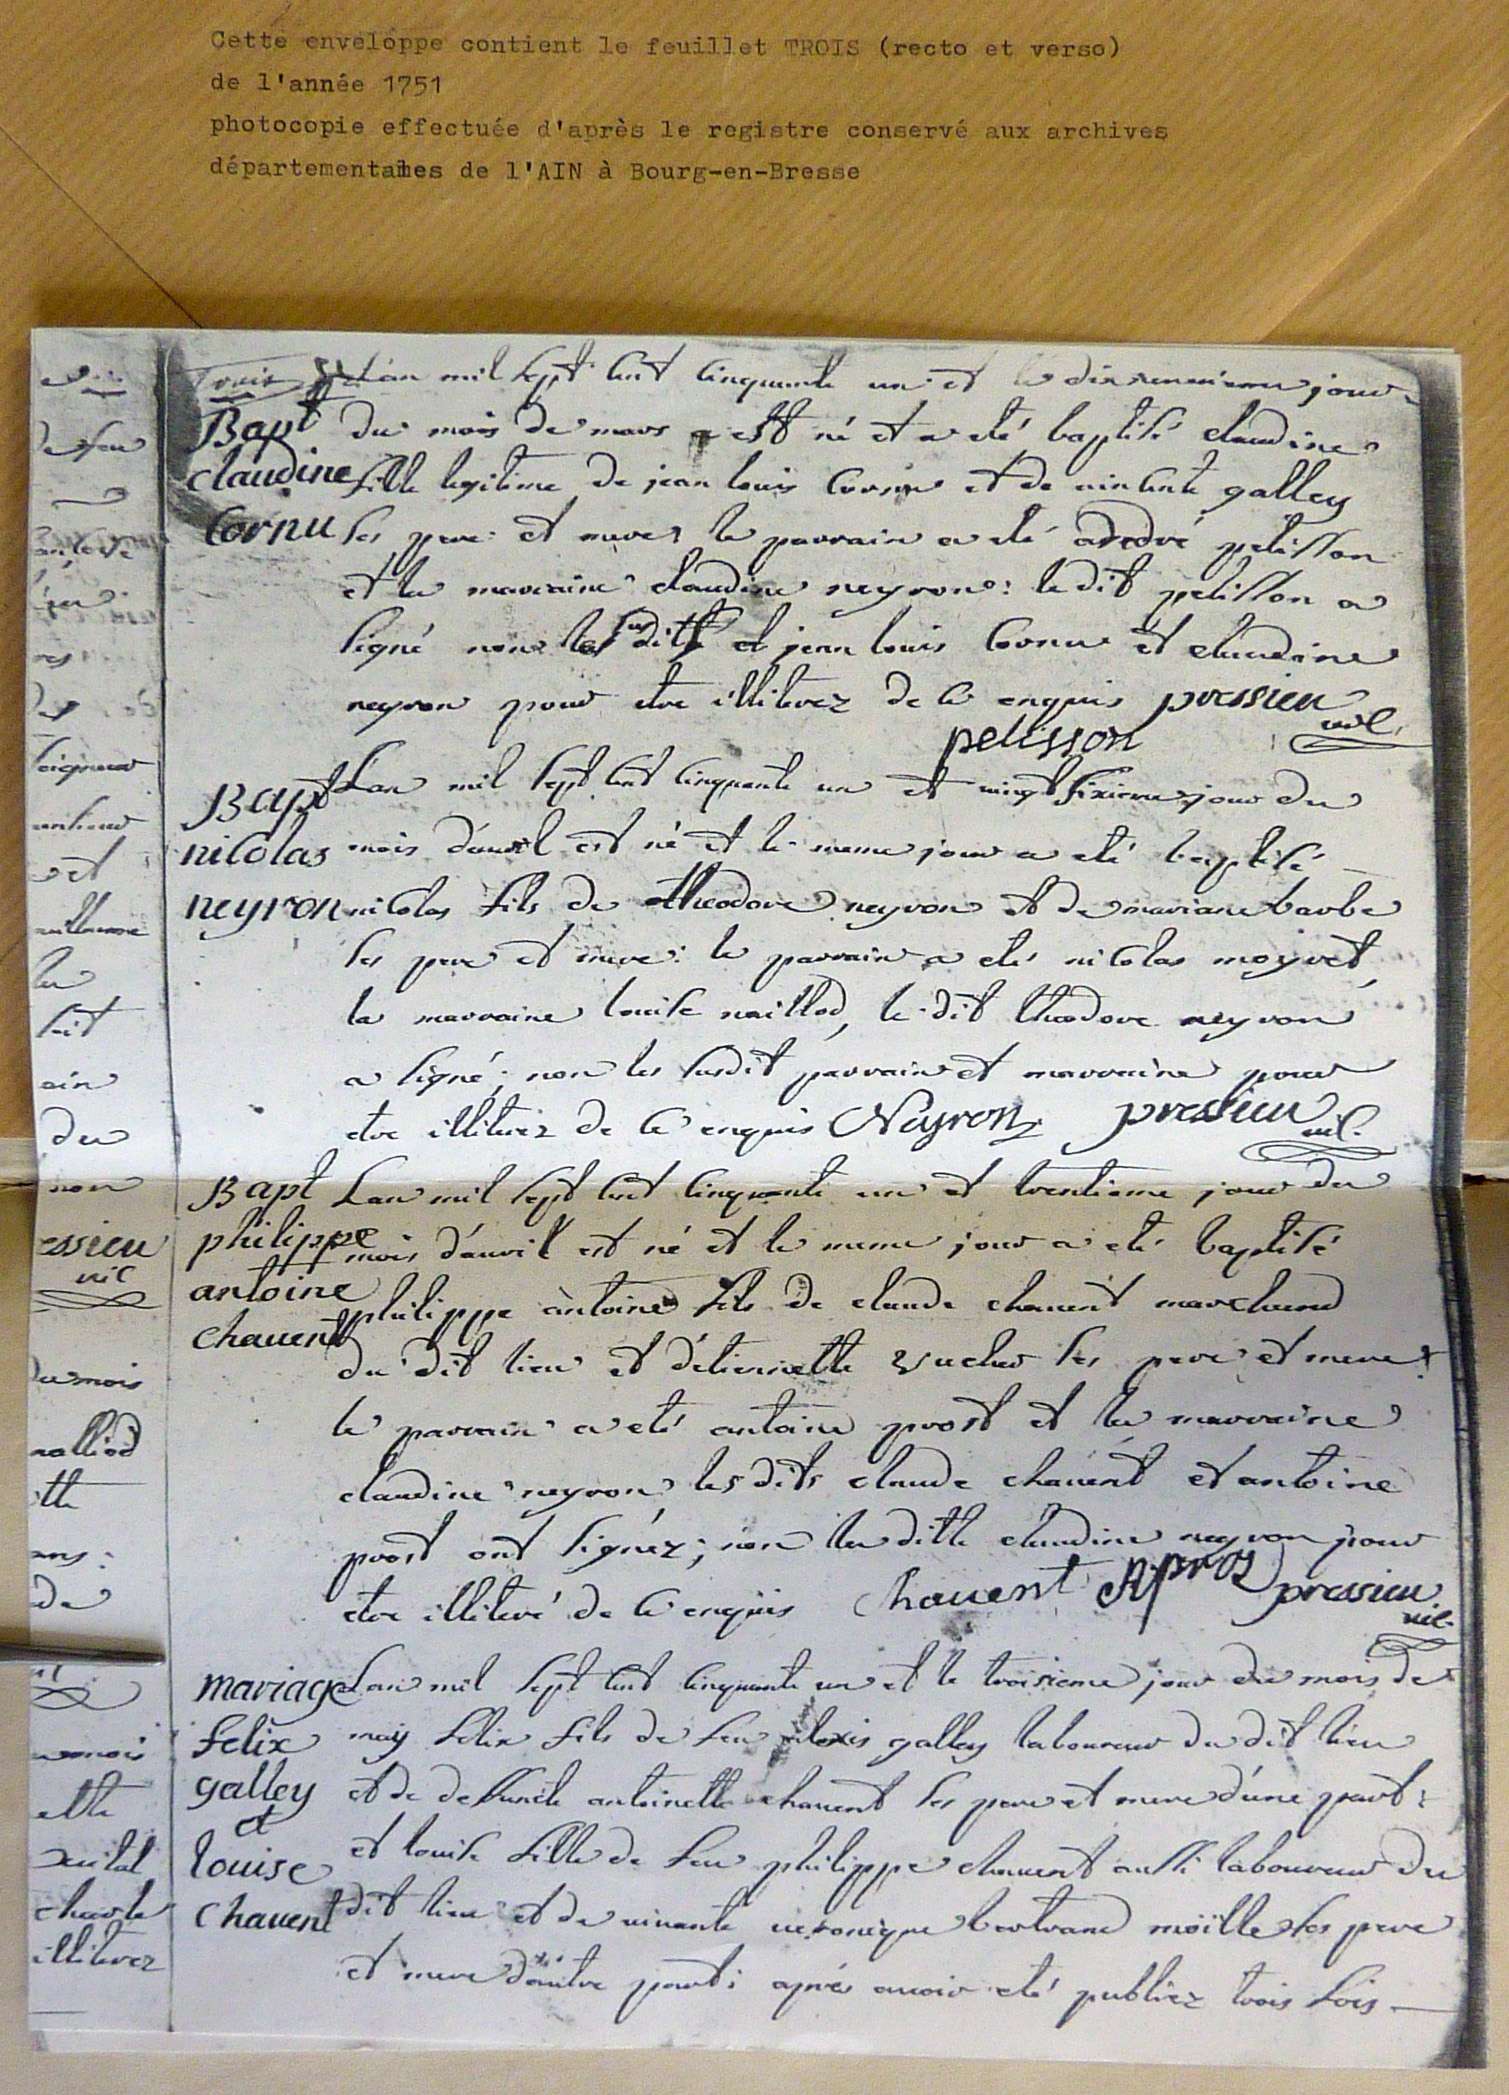 Cette enveloppe contient le feuillet TROIS (recto et verso)
de l'année 1751
photocopie effectuée d'après le registre conservé aux archives
départementales de l'AIN à Bourg-en-Bresse
Trois
Lan mil sept cent cinquante un et le dixneuvieme jour
Bapt
claudine
cornu
du mois de mars est né et a eté baptisé claudine
fille legitime de jean louis Cornu et de vincente galley
ses pere et mere; le parrain a eté andré pelisson
et la marraine claudine neyron: le dit pelisson a
signé non les susdits jean louis Cornu et claudine
neyron pour etre illiterez de ce enquis pressieu
vic.
pelisson
Bapt
nicolas
neyron
Lan mil sept cent cinquante un et vingt sixieme jour du
mois d'avril est né et le meme jour a eté baptisé
nicolas fils de theodore neyron et de mariane barbe
ses pere et mere: le parrain a eté nicolas moyret
la marraine louise naillod, le dit theodore neyron
a signé; non les susdit parrain et marraine pour
etre illiterez de ce enquis Neyron pressieu
vic.
Bapt
philippe
antoine
chauent
Lan mil sept cent cinquante un et trentieme jour du
mois d'avril est né et le meme jour a eté baptisé
philippe antoine fils de claude chauent marchand
du dit lieu et d'etiennette vucher ses pere et mere:
le parrain a eté antoine prost et la marraine
claudine neyron les dits claude chauent et antoine
prost ont signez; non la ditte claudine neyron pour
etre illiteré de ce enquis Chauent pros pressieu
vic.
mariage
felix
galley
et
louise
chauent
Lan mil sept cent cinquante un et le troisieme jour du mois de
may felix fils de feu alexis galley laboureur du dit lieu
et de deffuncte antoinette chauent ses pere et mere d'une part:
et louise fille de feu philippe chauent aussi laboureur du
dit lieu et de vivante veronique bertrand moïille ses pere
et mere d'autre part: aprés avoir eté publiez trois fois
de feu
res
seigneur
et
la
soit
du
non
essieu
vic
du mois
de
charle
illiterez